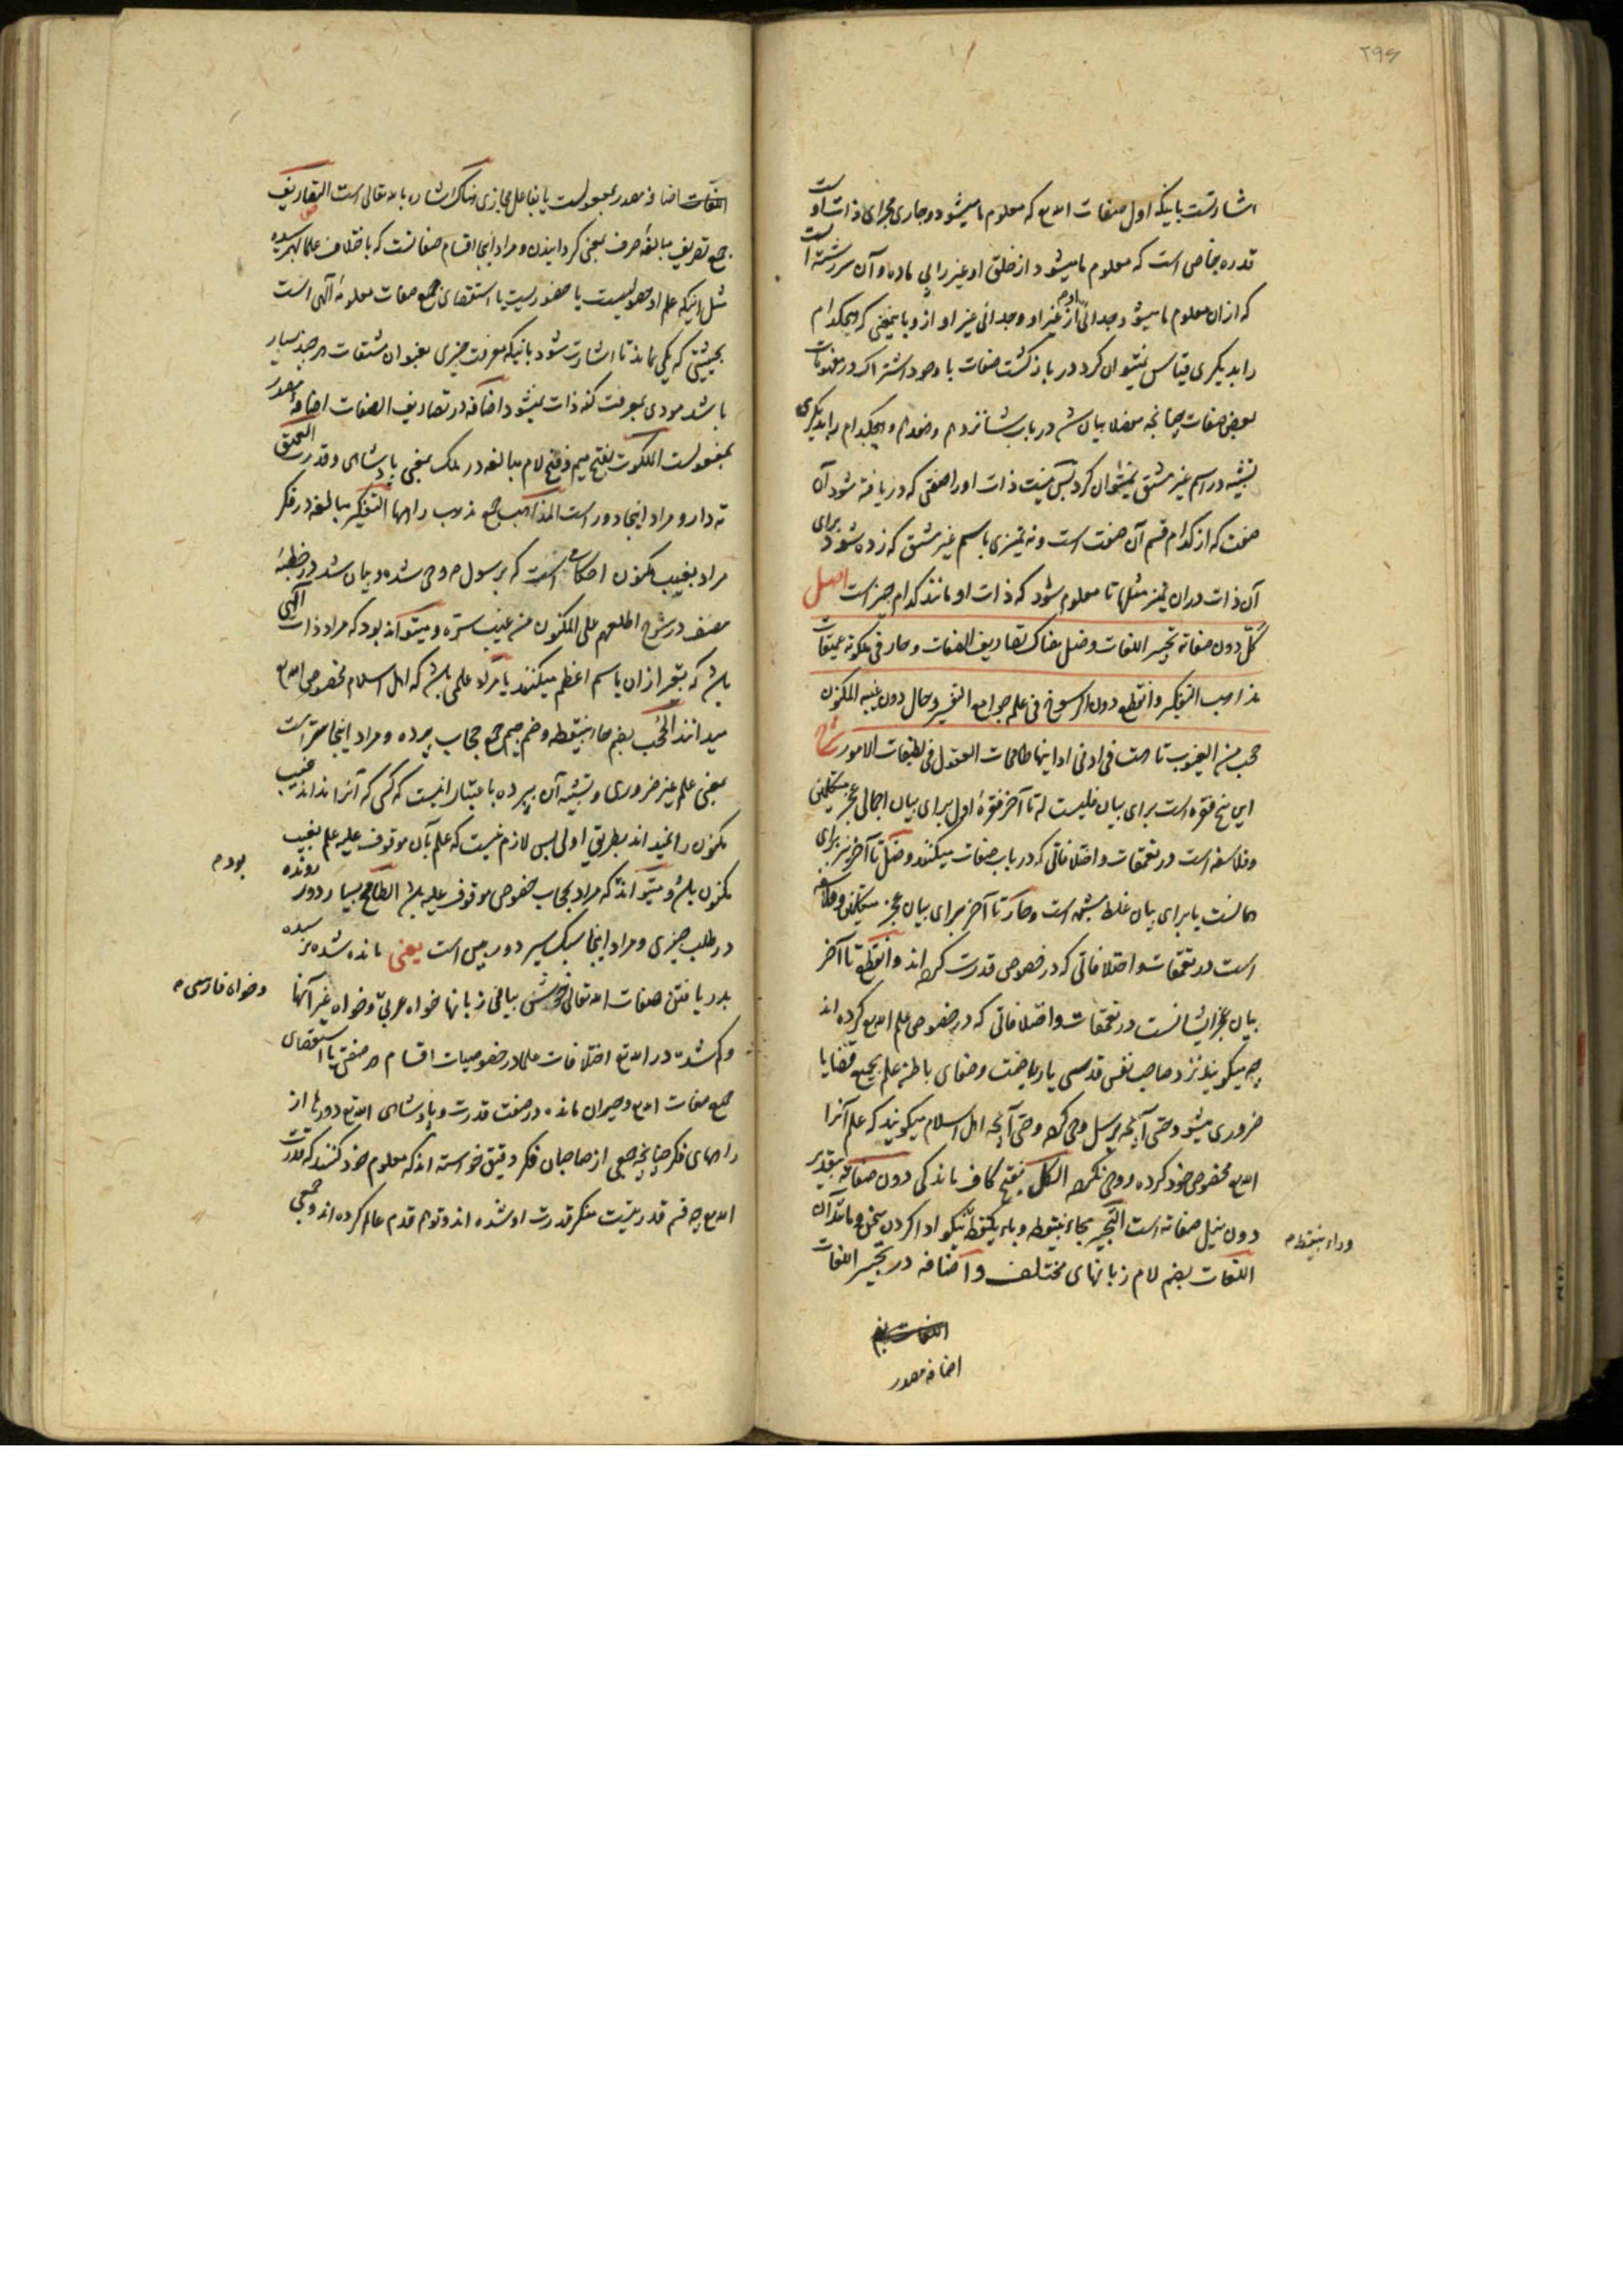 ۲۹۶
اشارتست باینکه اول صفات الله تع که معلوم ما میشود و جاری مجرای ذات او است
قدرة خاصی است که معلوم ما میشود از خلق او غیر را بی ماده و آن سررشته است
که ازان معلوم ما میشود جدائی او از غیر او و جدائی غیر او ازو باینمعنی که هیچکدام
را بدیگری قیاس نمیتوان کرد در بازگشت صفات با وجود اشتراک در مفهومات
بعض صفات چنانچه مفصلا بیان شد در باب شانزدهم و هیچکدام را بدیگری
تشبیه در اسم غیر مشتق نمیتوان کرد پس نیست ذات او را صفتی که دریافته شود آن
صفت که از کدام قسم آن صفت است و نه تمیزی باسم غیر مشتق که زده شود برای
آن ذات دران تمیز مثلها تا معلوم شود که ذات او مانند کدام چیز است اصل
کلّ دون صفاته تحبیر اللغات وضل هناک تصاریف الصفات وحار فی ملکوته عمیقات
مذاهب التفکیر وانقطع دون الرسوخ فی علمه جوامع التفسیر وحال دون غیبه المکنون
حجب من الغیوب تاهت فی ادنی ادانیها طامحات العقول فی لطیفات الامور شرح
این پنج فقره است برای بیان فلیست له تا آخر فقرهٔ اول برای بیان اجمالی عجز متکلمین
وفلاسفه است در تعمقات و اختلافاتی که در باب صفات میکنند وضلّ تا آخر نیز برای
همانست یا برای بیان غلط مشبهه است وحار تا آخر برای بیان عجز متکلمین وفلاسفه
است در تعمقات و اختلافاتی که در خصوص قدرت کرده اند وانقطع تا آخر
بیان عجز ایشانست در تعمقات و اختلافاتی که در خصوص علم الله تع کرده اند
چه میگویند نزد صاحب نفس قدسی یا ریاضت وصفای باطن علم بجمیع قضایا
ضروری میشود حتی آنچه برسل وحی کرده وحتی آنچه اهل اسلام میگویند که علم آنرا
الله تع مخصوص خود کرده و وحی نکرده الکلّ بفتح کاف ماندکی دون صفاته بتقدیر
دون نیل صفاته است التحبیر بحاء بینقطه وباء یکنقطه نیکو ادا کردن سخن و مانند آن
وراء بینقطه م
اللغات بضم لام زبانهای مختلف و اضافه در تحبیر اللغات
اضافه مصدر
اللغات اضافه مصدر بمفعولست یا بفاعل مجازی هناک اشاره بالله تعالی است التصاریف
جمع تصریف مبالغه صرف بمعنی گردانیدن ومراد اینجا اقسام صفاتست که باختلاف علما بهم رسیده
مثل اینکه علم او حصولیست یا حضوریست یا استقصای جمیع صفات معلومهٔ آلهی است
بحیثیتی که یکی نماند تا اشارت شود باینکه معرفت چیزی بعنوان مشتقات هرچند بسیار
باشد مودی بمعرفت کنه ذات نمیشود اضافه در تصاریف الصفات اضافهٔ مصدر
بمفعولست الملکوت بفتح میم وفتح لام مبالغه در ملک بمعنی پادشاهی و قدرت العمیق
ته دار ومراد اینجا دور است المذاهب جمع مذهب راهها التفکیر مبالغه در فکر
مراد بغیب مکنون احکامی است که برسول ص وحی شده و بیان شد در خطبهٔ
مصنف در شرح اطلعهم علی المکنون من غیب سرّه و میتواند بود که مراد ذات آلهی
باشد که تعبیر ازان باسم اعظم میکنند یا مراد علمی باشد که اهل اسلام مخصوص الله تع
میدانند الحجب بضم حاء بینقطه وضم جیم جمع حجاب پرده ومراد اینجا ستر است
بمعنی علم غیر ضروری و تشبیه آن بپرده باعتبار اینست که کسی که آنرا نداند غیب
مکنون را نمیداند بطریق اولی پس لازم نیست که علم بآن موقوف علیه علم بغیب
مکنون باشد و میتواند که مراد بحجاب خصوص موقوف علیه باشد الطامح بسیار دور رونده
بود م
در طلب چیزی ومراد اینجا سبک سیر دور بین است یعنی مانده شده نرسیده
بدریافتن صفات الله تعالی خوش بیانی زبانها خواه عربی وخواه غیر آنها
وخواه فارسی م
وگم شدت در الله تع اختلافات علما در خصوصیات اقسام هر صفتی یا استقصای
جمیع صفات الله تع وحیران مانده در صفت قدرت وپادشاهی الله تع دورها از
راههای فکر چنانچه جمعی از صاحبان فکر دقیق خواسته اند که معلوم خود کنند که قدرت
الله تع چه قسم قدرتیست منکر قدرت او شده اند و توهم قدم عالم کرده اند و جمعی